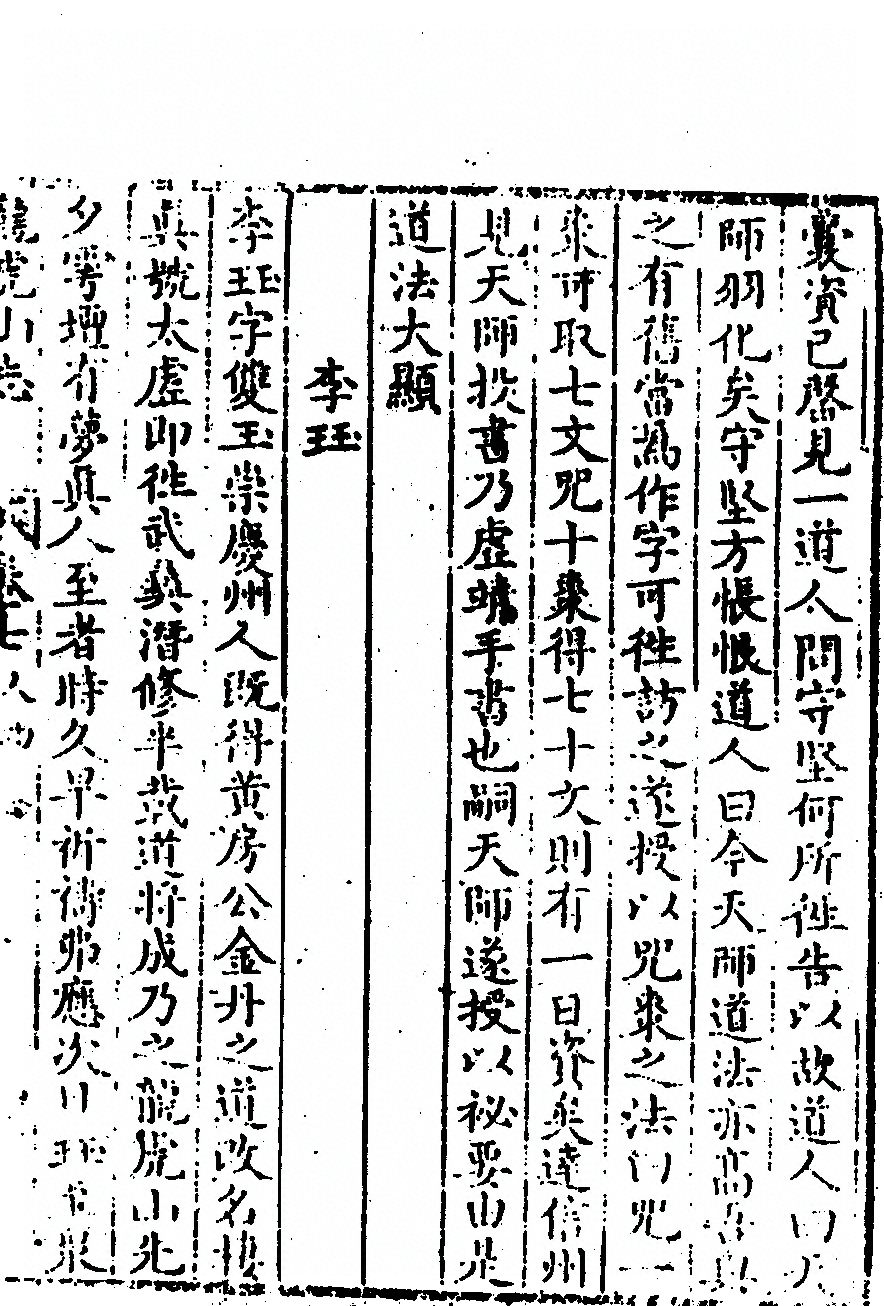 囊資已罄見一道人問守堅何所徃告以故道人曰天
師羽化矣守堅方悵恨道人曰今天師道法亦高吾與
之有舊當爲作字可徃訪之遂授以咒棗之法曰咒一
棗可取七文咒十棗得七十文則有一日資矣達信州
見天師投書乃虛靖手書也嗣天師遂授以祕要由是
道法大顯
李珏
李珏字雙玉崇慶州人既得黃房公金丹之道改名棲
眞號太虛卽徃武彝潛修半載道將成乃之龍虎山先
夕等壇有夢眞人至者時久旱祈禱弗應次日珏至衆
龍虎山志 卷七人物